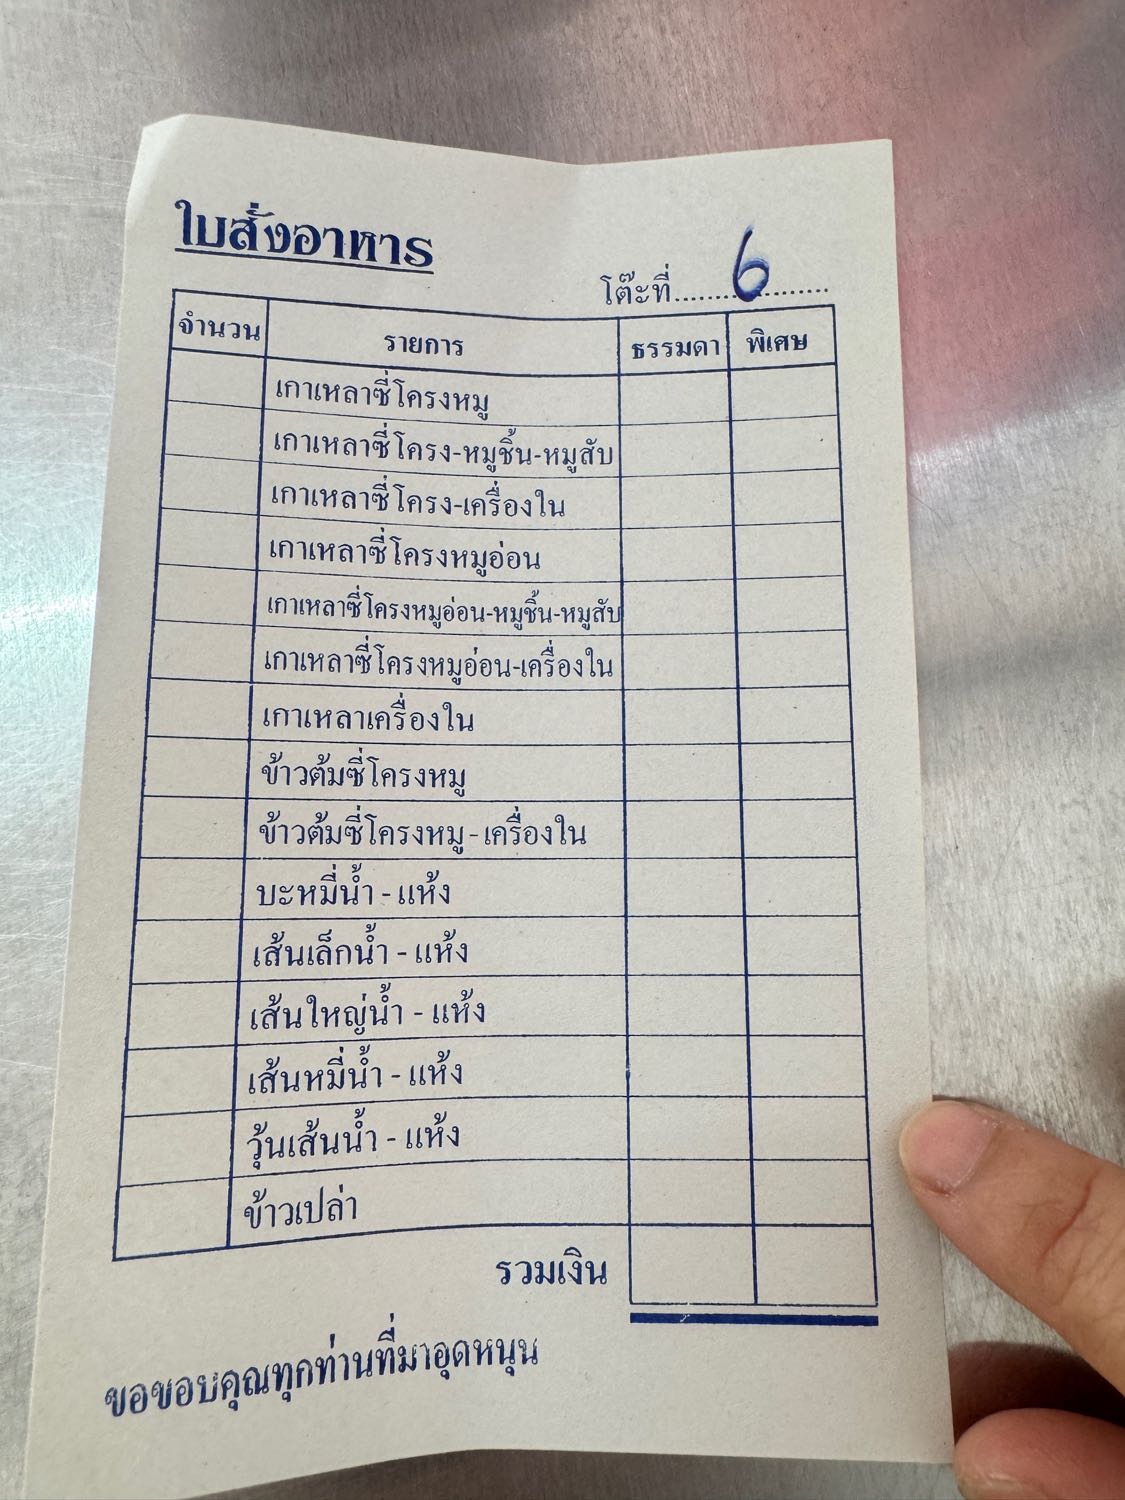 ใบสั่งอาหาร
โต๊ะที่.......6.......
จำนวน รายการ ธรรมดา พิเศษ
เกาเหลาซี่โครงหมู
เกาเหลาซี่โครง-หมูชิ้น-หมูสับ
เกาเหลาซี่โครง-เครื่องใน
เกาเหลาซี่โครงหมูอ่อน
เกาเหลาซี่โครงหมูอ่อน-หมูชิ้น-หมูสับ
เกาเหลาซี่โครงหมูอ่อน-เครื่องใน
เกาเหลาเครื่องใน
ข้าวต้มซี่โครงหมู
ข้าวต้มซี่โครงหมู-เครื่องใน
บะหมี่น้ำ - แห้ง
เส้นเล็กน้ำ - แห้ง
เส้นใหญ่น้ำ - แห้ง
เส้นหมี่น้ำ - แห้ง
วุ้นเส้นน้ำ - แห้ง
ข้าวเปล่า
รวมเงิน
ขอขอบคุณทุกท่านที่มาอุดหนุน